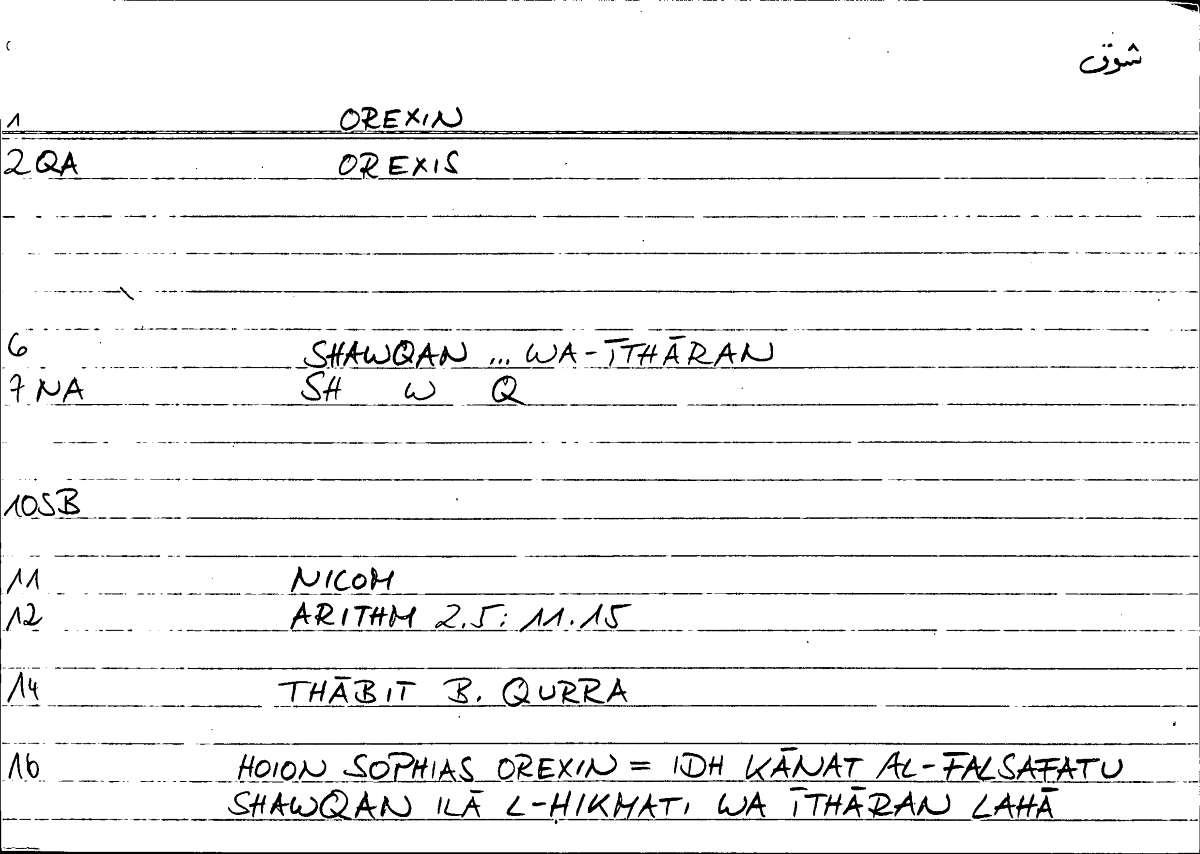 شوق
1 OREXIN
2 QA OREXIS
6 SHAWQAN ... WA-ĪTHĀRAN
7 NA SH W Q
10 SB
11 NICOM
12 ARITHM 2.5: 11.15
14 THĀBIT B. QURRA
16 HOION SOPHIAS OREXIN = IDH KĀNAT AL-FALSAFATU
SHAWQAN ILĀ L-ḤIKMATI WA ĪTHĀRAN LAHĀ